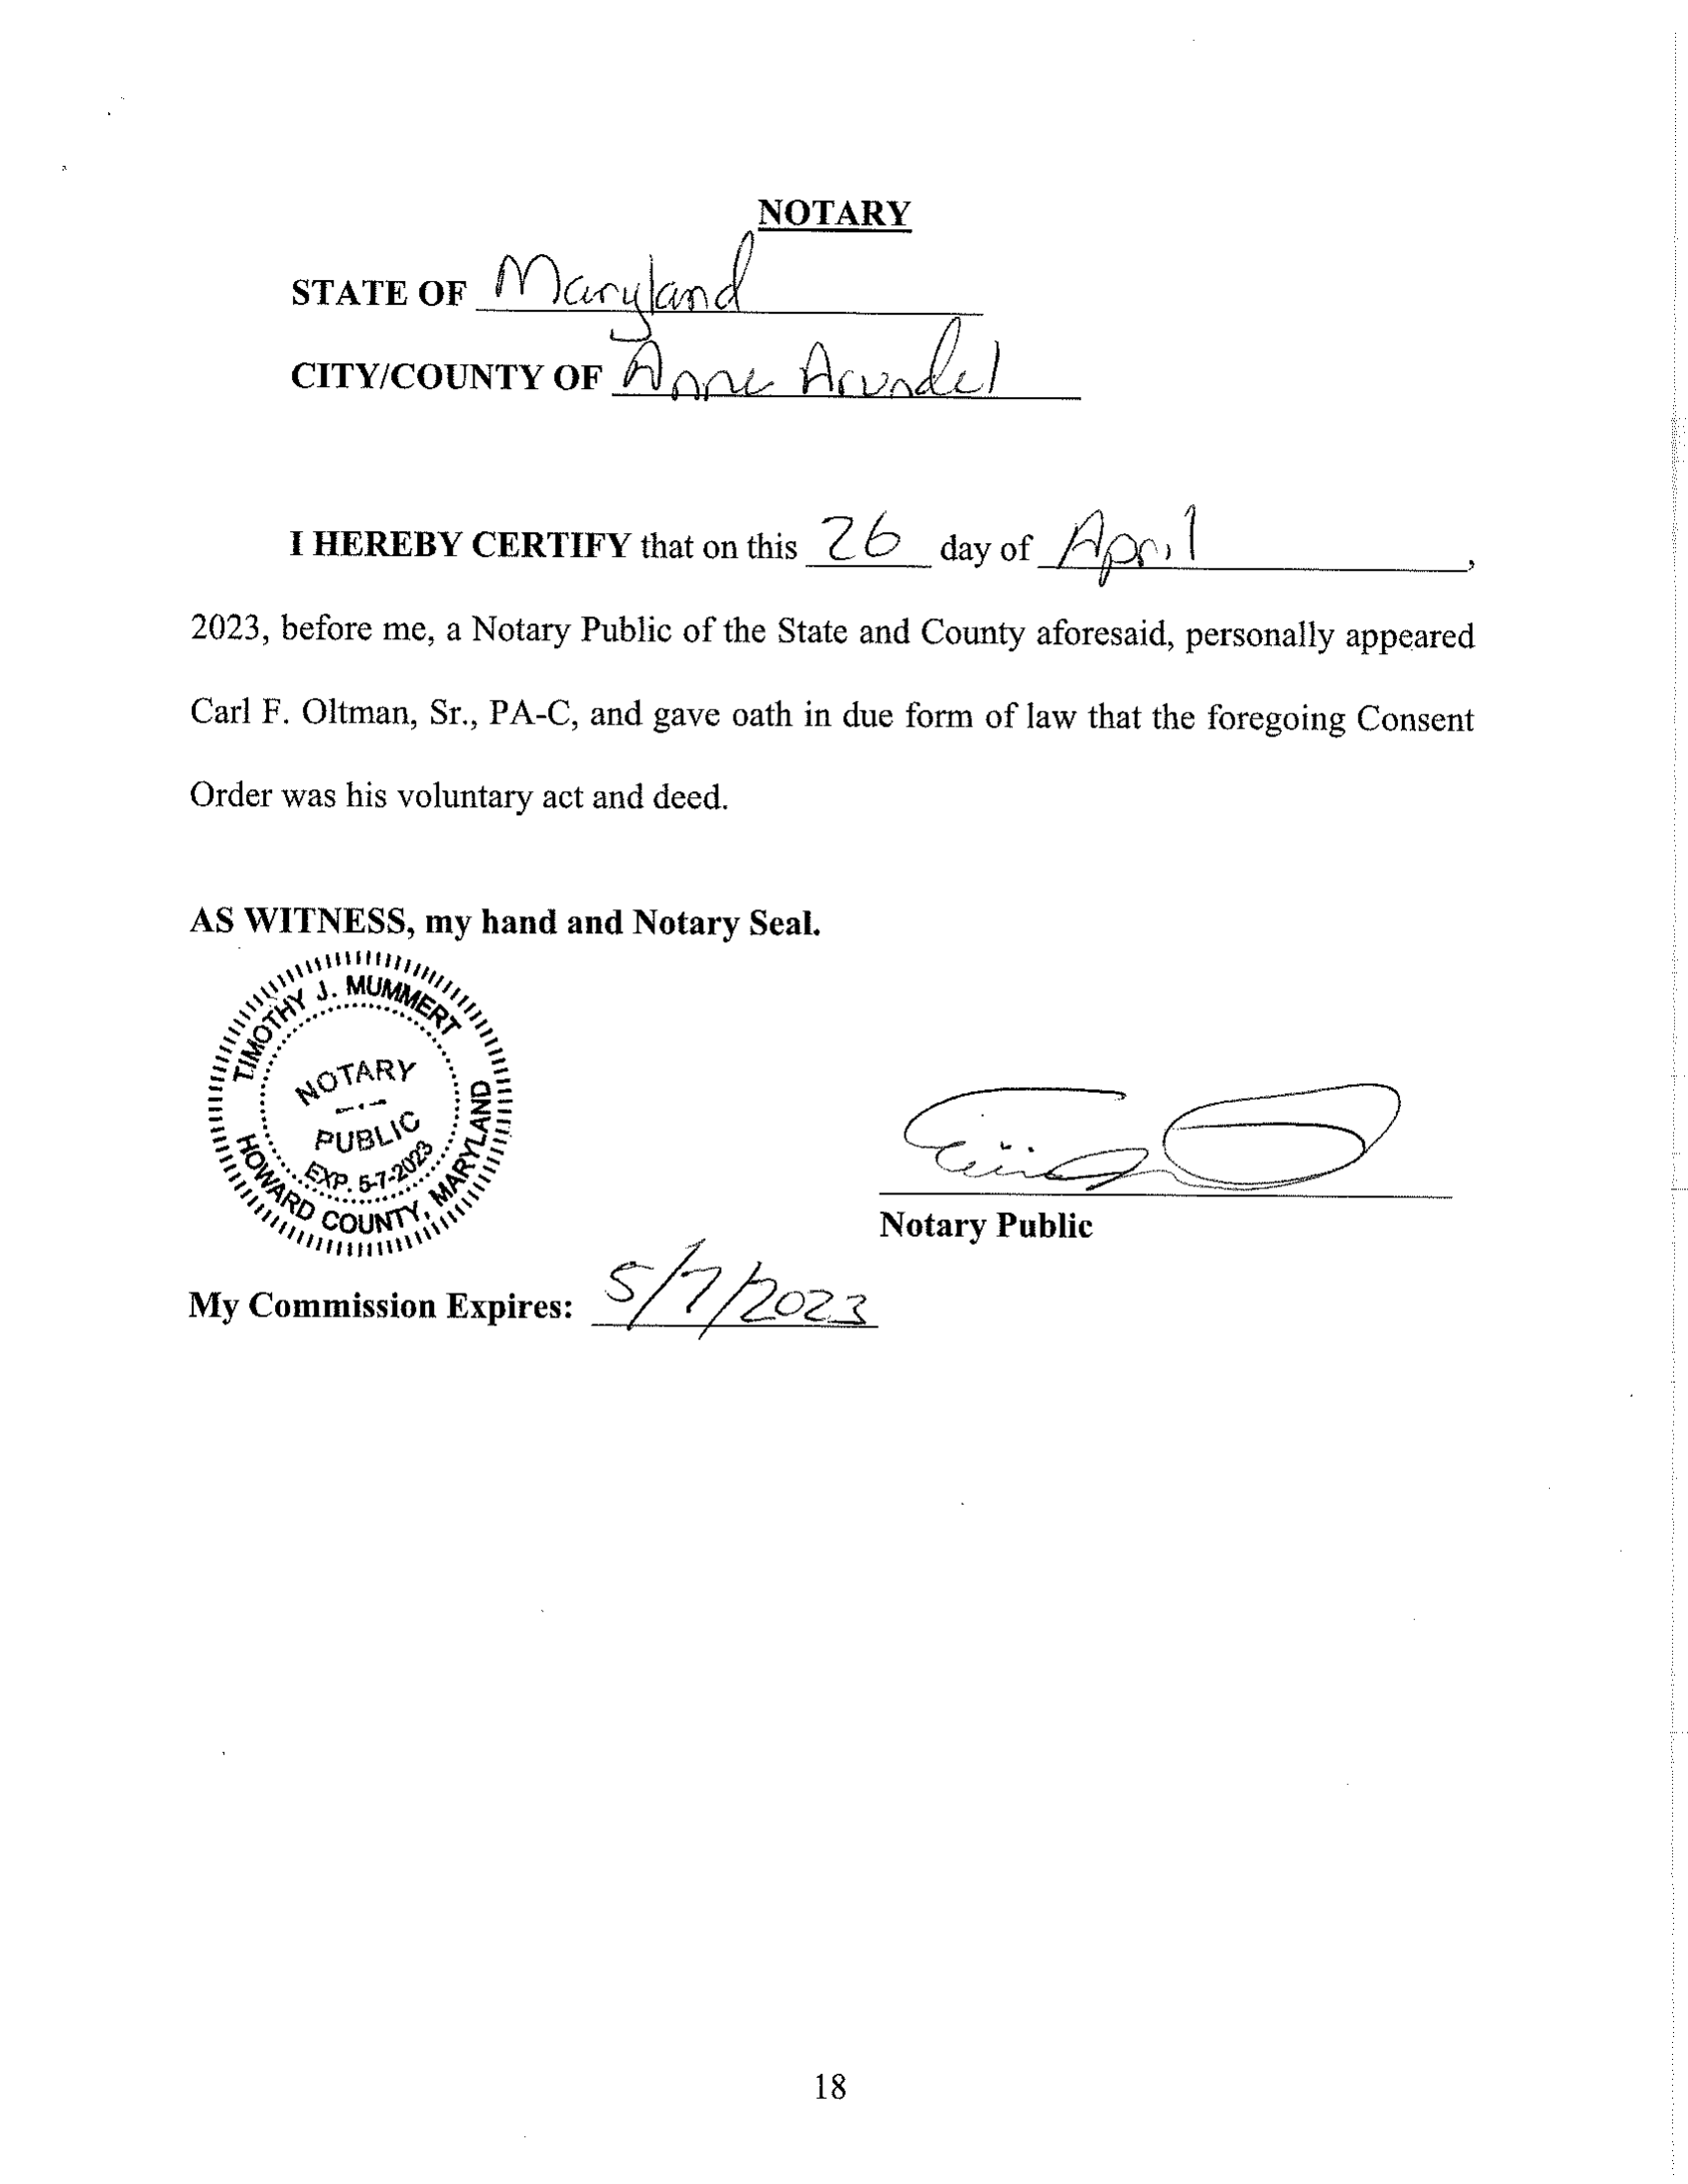 NOTARY
STATE OF Maryland
CITY/COUNTY OF Anne Arundel
I HEREBY CERTIFY that on this 26 day of April,
2023, before me, a Notary Public of the State and County aforesaid, personally appeared
Carl F. Oltman, Sr., PA-C, and gave oath in due form of law that the foregoing Consent
Order was his voluntary act and deed.
AS WITNESS, my hand and Notary Seal.
TIMOTHY J. MUMMERT
NOTARY
PUBLIC
EXP. 5-7-2023
HOWARD COUNTY, MARYLAND
Notary Public
My Commission Expires: 5/7/2023
18